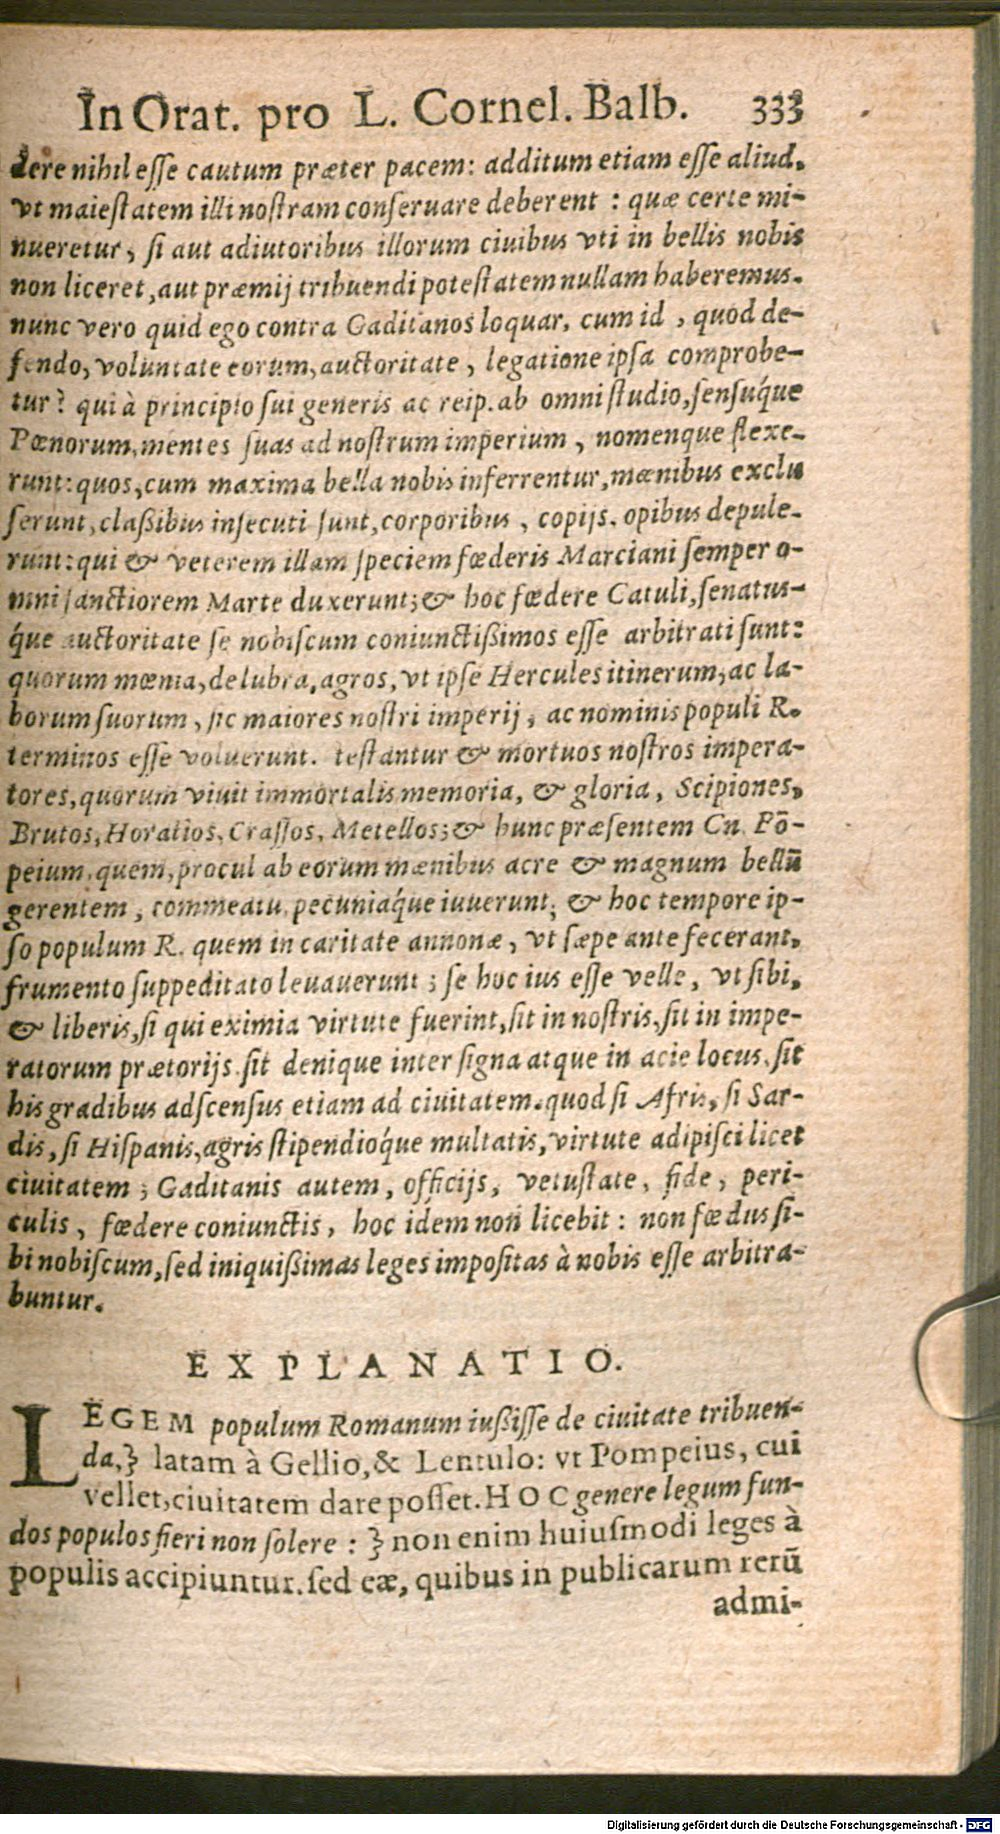 In Orat. pro L. Cornel. Balb. 333
dere nihil eſſe cautum præter pacem: additum etiam eſſe aliud,
vt maieſtatem illi noſtram conſeruare deberent : quæ certe mi-
nueretur, ſi aut adiutoribus illorum ciuibus vti in bellis nobis
non liceret, aut præmij tribuendi poteſtatem nullam haberemus.
nunc vero quid ego contra Gaditanos loquar, cum id , quod de-
fendo, voluntate eorum, auctoritate , legatione ipſa comprobe-
tur? qui à principio ſui generis ac reip. ab omni ſtudio, ſenſuq́ue
Pœnorum, mentes ſuas ad noſtrum imperium , nomenque flexe-
runt: quos, cum maxima bella nobis inferrentur, mœnibus exclu
ſerunt, claßibus inſecuti ſunt, corporibus , copijs, opibus depule-
runt: qui & veterem illam ſpeciem fœderis Marciani ſemper o-
mni ſanctiorem Marte duxerunt; & hoc fœdere Catuli, ſenatus-
q́ue auctoritate ſe nobiſcum coniunctißimos eſſe arbitrati ſunt:
quorum mœnia, delubra, agros, vt ipſe Hercules itinerum, ac la-
borum ſuorum , ſic maiores noſtri imperij , ac nominis populi R.
terminos eſſe voluerunt. teſtantur & mortuos noſtros impera-
tores, quorum viuit immortalis memoria, & gloria, Scipiones,
Brutos, Horatios, Craſſos, Metellos; & hunc præſentem Cn. Põ-
peium, quem, procul ab eorum mœnibus acre & magnum bellũ
gerentem , commeatu, pecuniaq́ue iuuerunt; & hoc tempore ip-
ſo populum R. quem in caritate annonæ, vt ſæpe ante fecerant,
frumento ſuppeditato leuauerunt ; ſe hoc ius eſſe velle, vt ſibi,
& liberis, ſi qui eximia virtute fuerint, ſit in noſtris, ſit in impe-
ratorum prætorijs ſit denique inter ſigna atque in acie locus, ſit
his gradibus adſcenſus etiam ad ciuitatem. quod ſi Afris, ſi Sar-
dis, ſi Hiſpanis, agris ſtipendioq́ue multatis, virtute adipiſci licet
ciuitatem ; Gaditanis autem, officijs, vetuſtate, fide, peri-
culis , fœdere coniunctis, hoc idem non licebit : non fœdus ſi-
bi nobiſcum, ſed iniquißimas leges impoſitas à nobis eſſe arbitra-
buntur.
EXPLANATIO.
LEGEM populum Romanum iußiſſe de ciuitate tribuen-
da,} latam à Gellio, & Lentulo: vt Pompeius, cui
vellet, ciuitatem dare poſſet. HOC genere legum fun-
dos populos fieri non ſolere : } non enim huiuſmodi leges à
populis accipiuntur. ſed eæ, quibus in publicarum rerũ
admi-
Digitalisierung gefördert durch die Deutsche Forschungsgemeinschaft - DFG